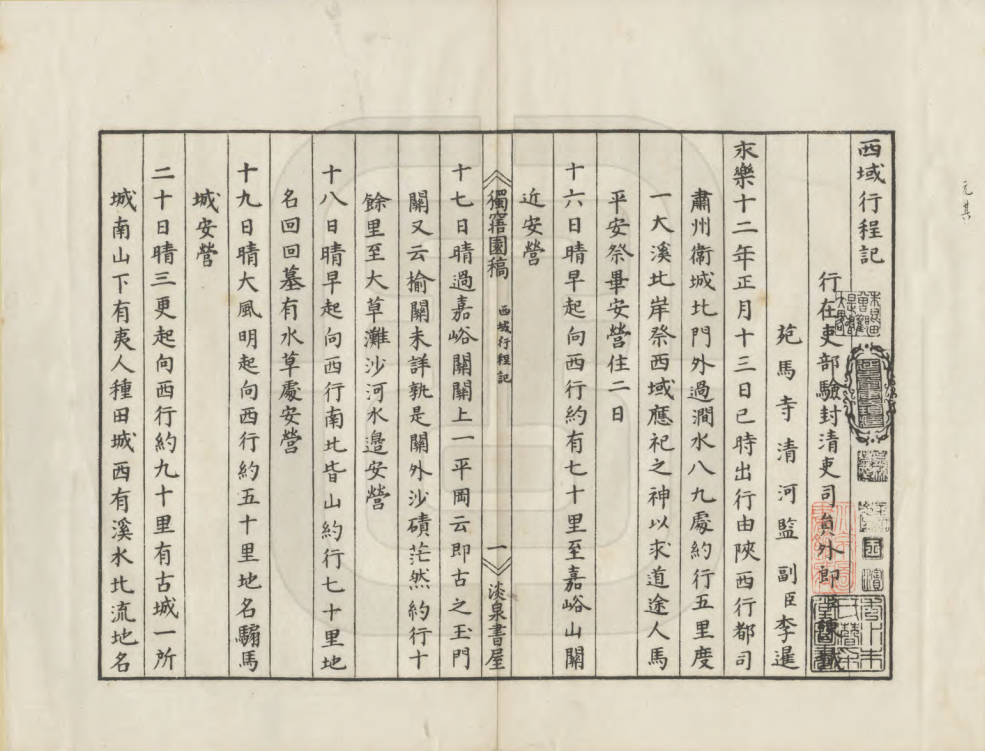 西域行程記
行在吏部驗封清吏司員外郎
苑馬寺清河監副臣李暹
永樂十二年正月十三日巳時出行由陜西行都司
肅州衛城北門外過澗水八九處約行五里度
一大溪北岸祭西域應祀之神以求道途人馬
平安祭畢安營住二日
十六日晴早起向西行約有七十里至嘉峪山關
近安營
十七日晴過嘉峪關關上一平岡云即古之玉門
關又云榆關未詳孰是關外沙磧茫然約行十
餘里至大草灘沙河水邊安營
十八日晴早起向西行南北皆山約行七十里地
名回回墓有水草處安營
十九日晴大風明起向西行約五十里地名騸馬
城安營
二十日晴三更起向西行約九十里有古城一所
城南山下有夷人種田城西有溪水北流地名
獨寤園稿
西域行程記
一
淡泉書屋